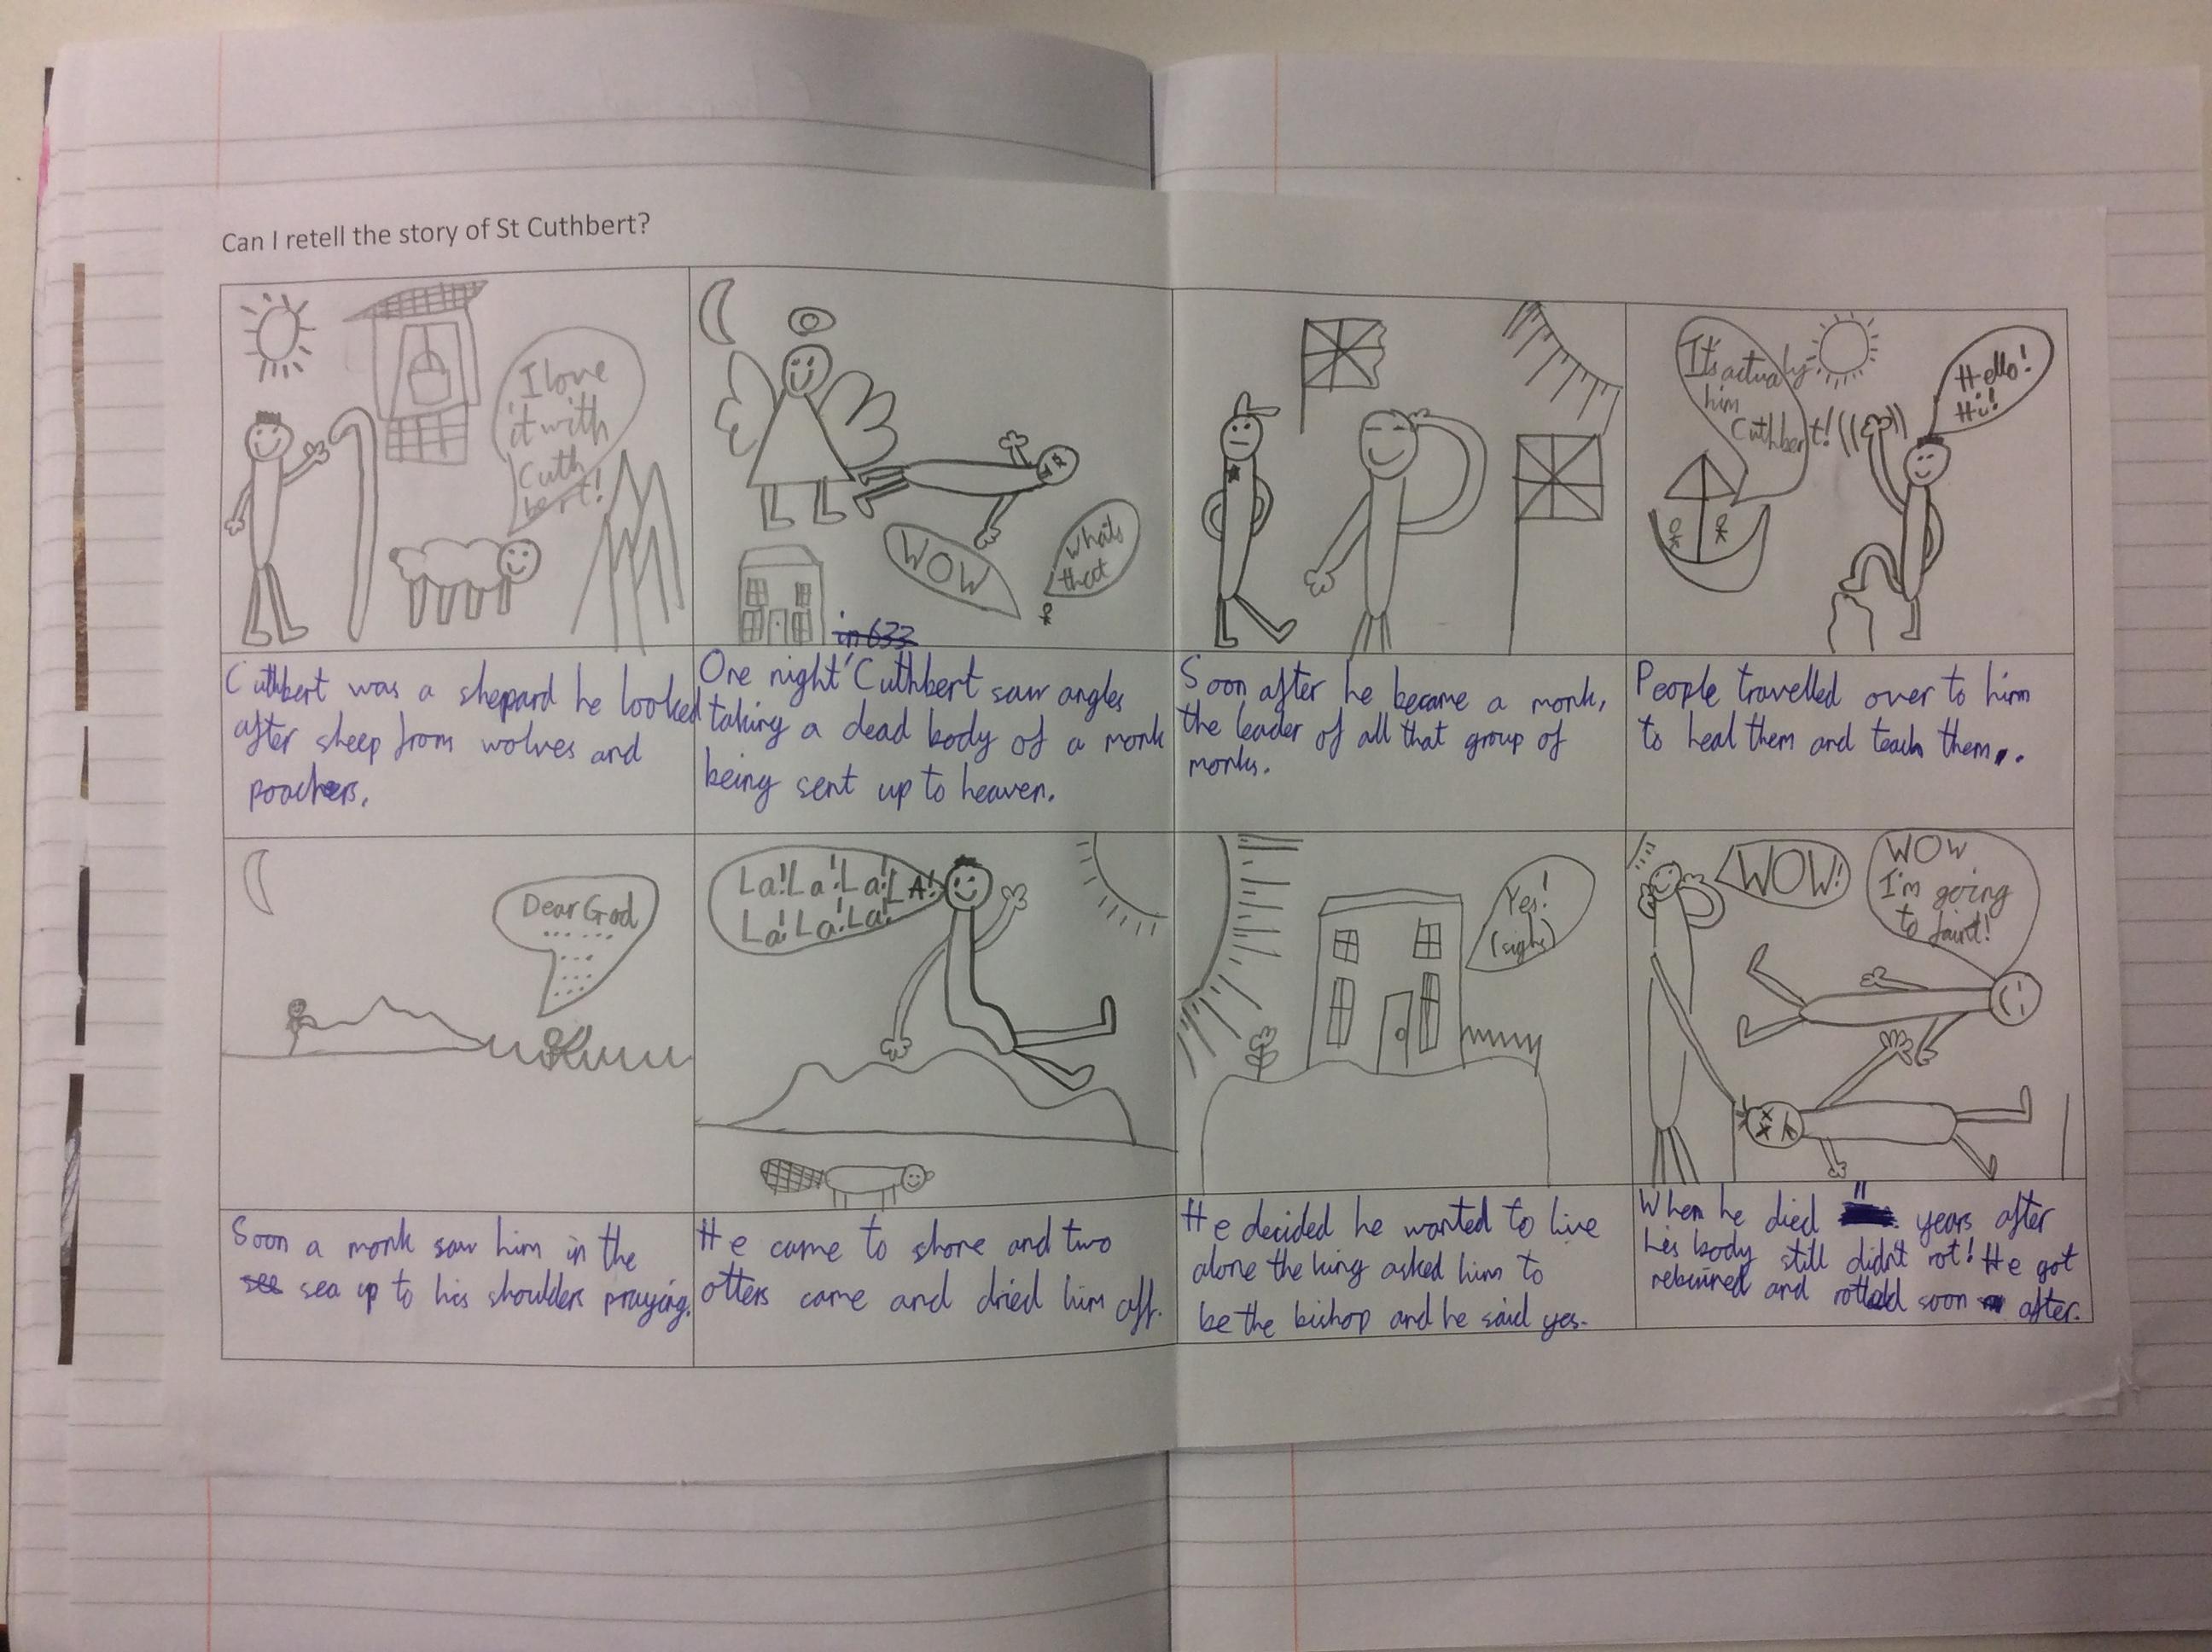 Can I retell the story of St Cuthbert?
I love
it with
Cuth
bert!
Cuthbert was a shepard he looked
after sheep from wolves and
poachers.
WOW
whats
that
in 633
One night Cuthbert saw angles
taking a dead body of a monk
being sent up to heaven.
Soon after he became a monk,
the leader of all that group of
monks.
It's actualy
him
Cuthbert!
Hello!
Hi!
People travelled over to him
to heal them and teach them.
Dear God
Soon a monk saw him in the
see sea up to his shoulders praying.
La! La! La! LA!
La! La! La!
He came to shore and two
otters came and dried him off.
Yes!
(sighs)
He decided he wanted to live
alone the king asked him to
be the bishop and he said yes.
WOW!
WOW
I'm going
to faint!
When he died 11 years after
his body still didn't rot! He got
reburied and rotted soon after.